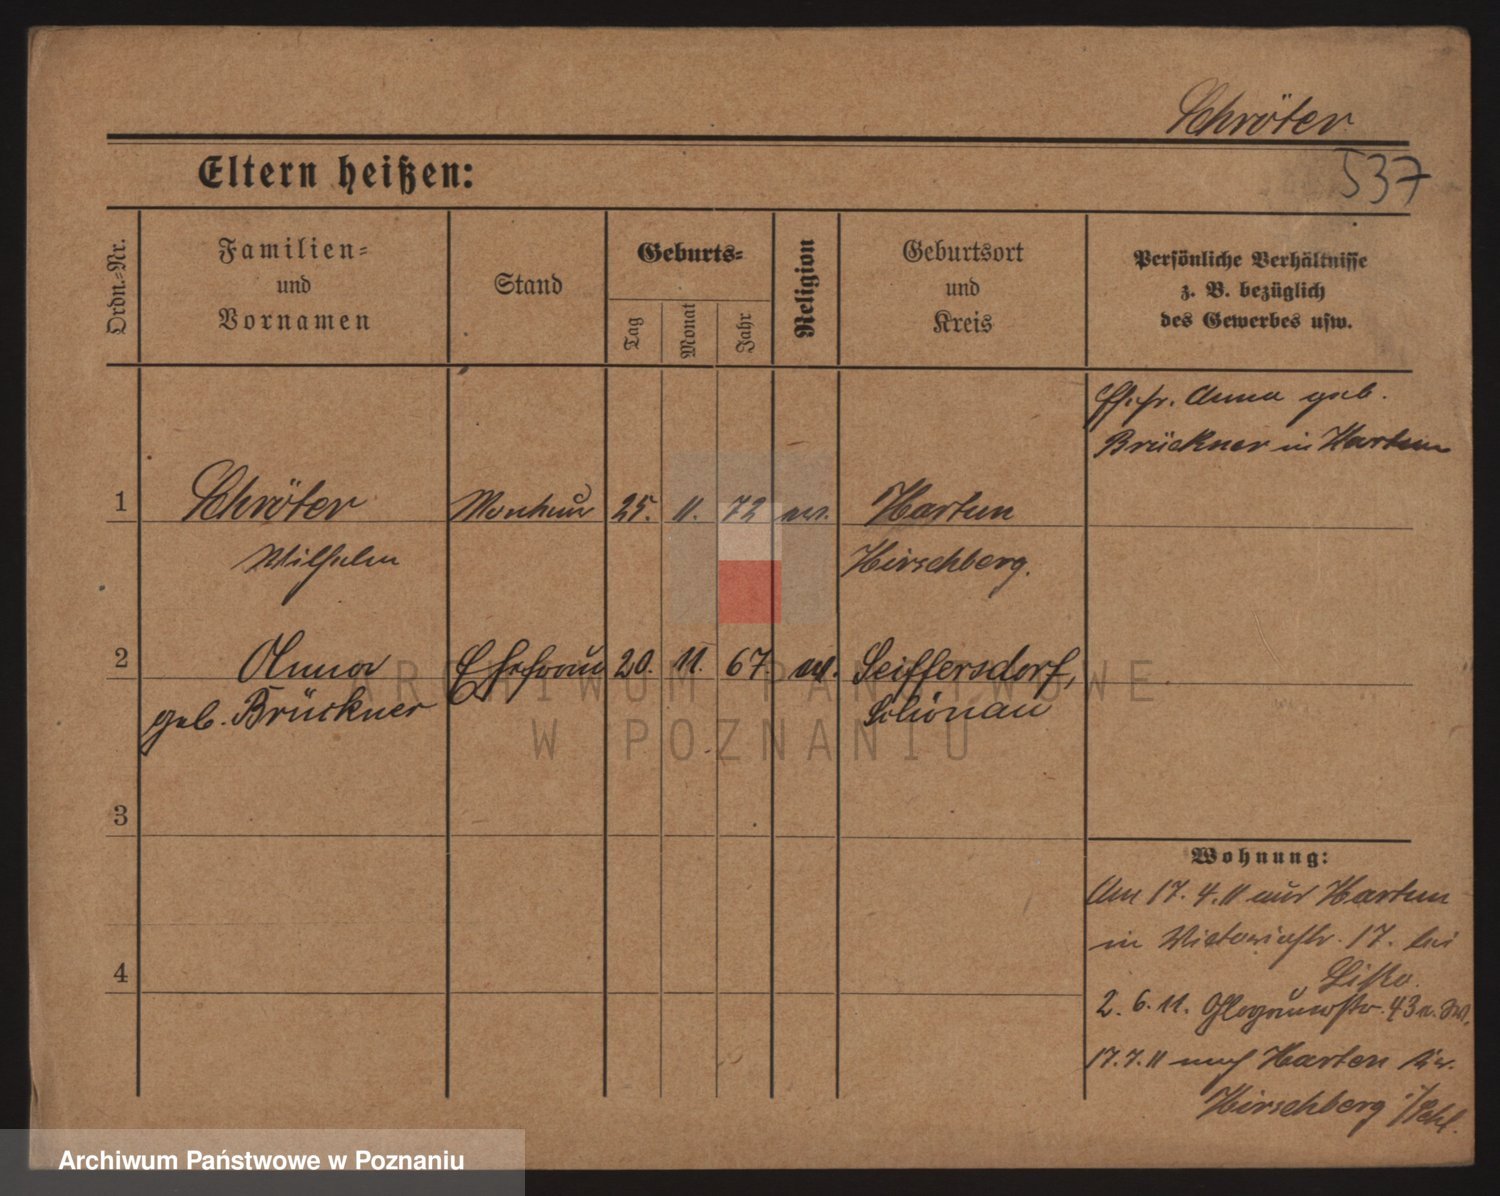 Schröter
537
Eltern heißen:
Ordn.-Nr.
Familien-
und
Vornamen
Stand
Geburts-
Tag
Monat
Jahr
Religion
Geburtsort
und
Kreis
Persönliche Verhältnisse
z. B. bezüglich
des Gewerbes usw.
Ehefr. Anna geb.
Brückner in Hartun
1 Schröter Monteur 25. 11. 72 ev. Hartun
Wilhelm Hirschberg.
2 Anna Ehefrau 20. 11. 67. ev. Seiffersdorf,
geb. Brückner Schönau
3
Wohnung:
Am 17. 4. 11 aus Hartun
in Victoriastr. 17. bei
4
2. 6. 11. Glogauerstr. 43
17. 7. 11 nach Harten
Hirschberg i/Schl.
ARCHIWUM PAŃSTWOWE
W POZNANIU
Archiwum Państwowe w Poznaniu